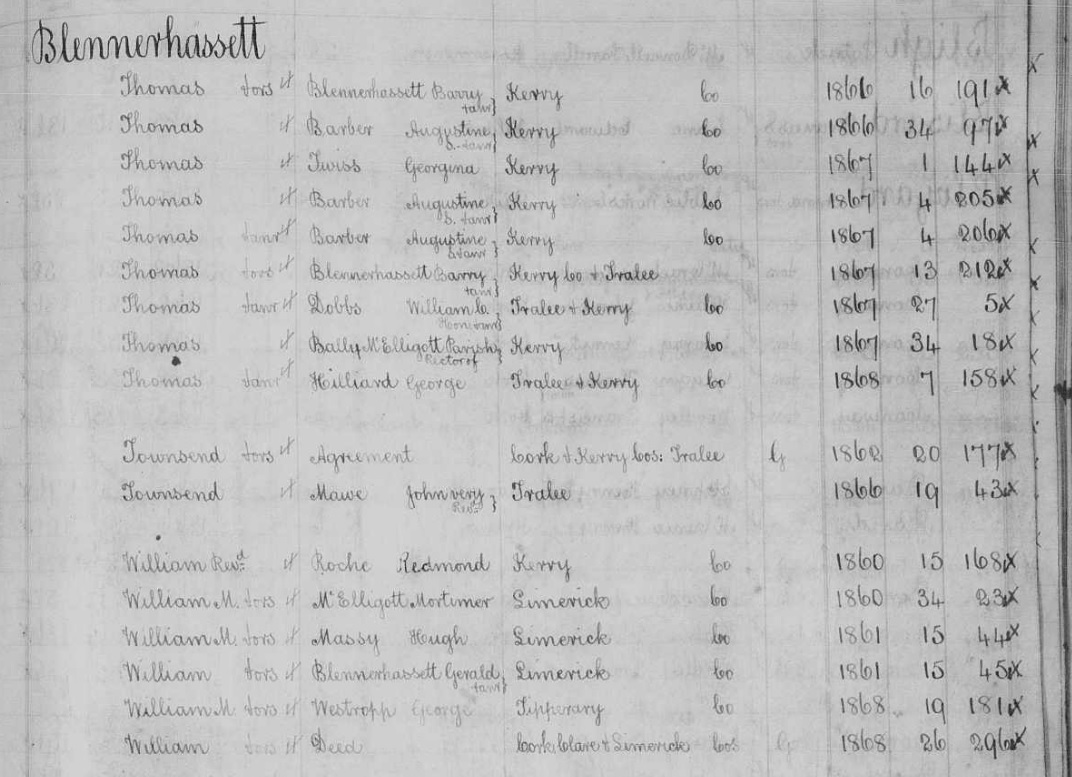 Blennerhassett
Thomas tors & Blennerhassett Barry Kerry Co 1866 16 191 x
& anr}
Thomas & Barber Augustine Kerry Co 1866 34 97 x
S. & anr}
Thomas & Twiss Georgina Kerry Co 1867 1 144 x
Thomas & Barber Augustine Kerry Co 1867 4 205 x
S. & anr}
Thomas & anr & Barber Augustine Kerry Co 1867 4 206 x
S & anr}
Thomas tors & Blennerhassett Barry Kerry Co & Tralee 1867 13 212 x
& anr}
Thomas & anr & Dobbs William C. Tralee & Kerry Co 1867 27 5 x
Hon. & anr}
Thomas & Bally McElligott Parish Kerry Co 1867 34 18 x
Rector of}
Thomas & anr & Hilliard George Tralee & Kerry Co 1868 7 158 x
Townsend tors & Agreement Cork & Kerry Cos: Tralee G 1862 20 177 x
Townsend & Mawe John Tralee 1866 19 43 x
Revd }
William Revd & Roche Redmond Kerry Co 1860 15 168 x
William M. tors & McElligott Mortimer Limerick Co 1860 34 23 x
William M. tors & Massy Hugh Limerick Co 1861 15 44 x
William tors & Blennerhassett Gerald Limerick Co 1861 15 45 x
& anr}
William M. tors & Westropp George Tipperary Co 1868 19 181 x
William tors & Deed Cork Clare & Limerick Cos G 1868 26 296 x